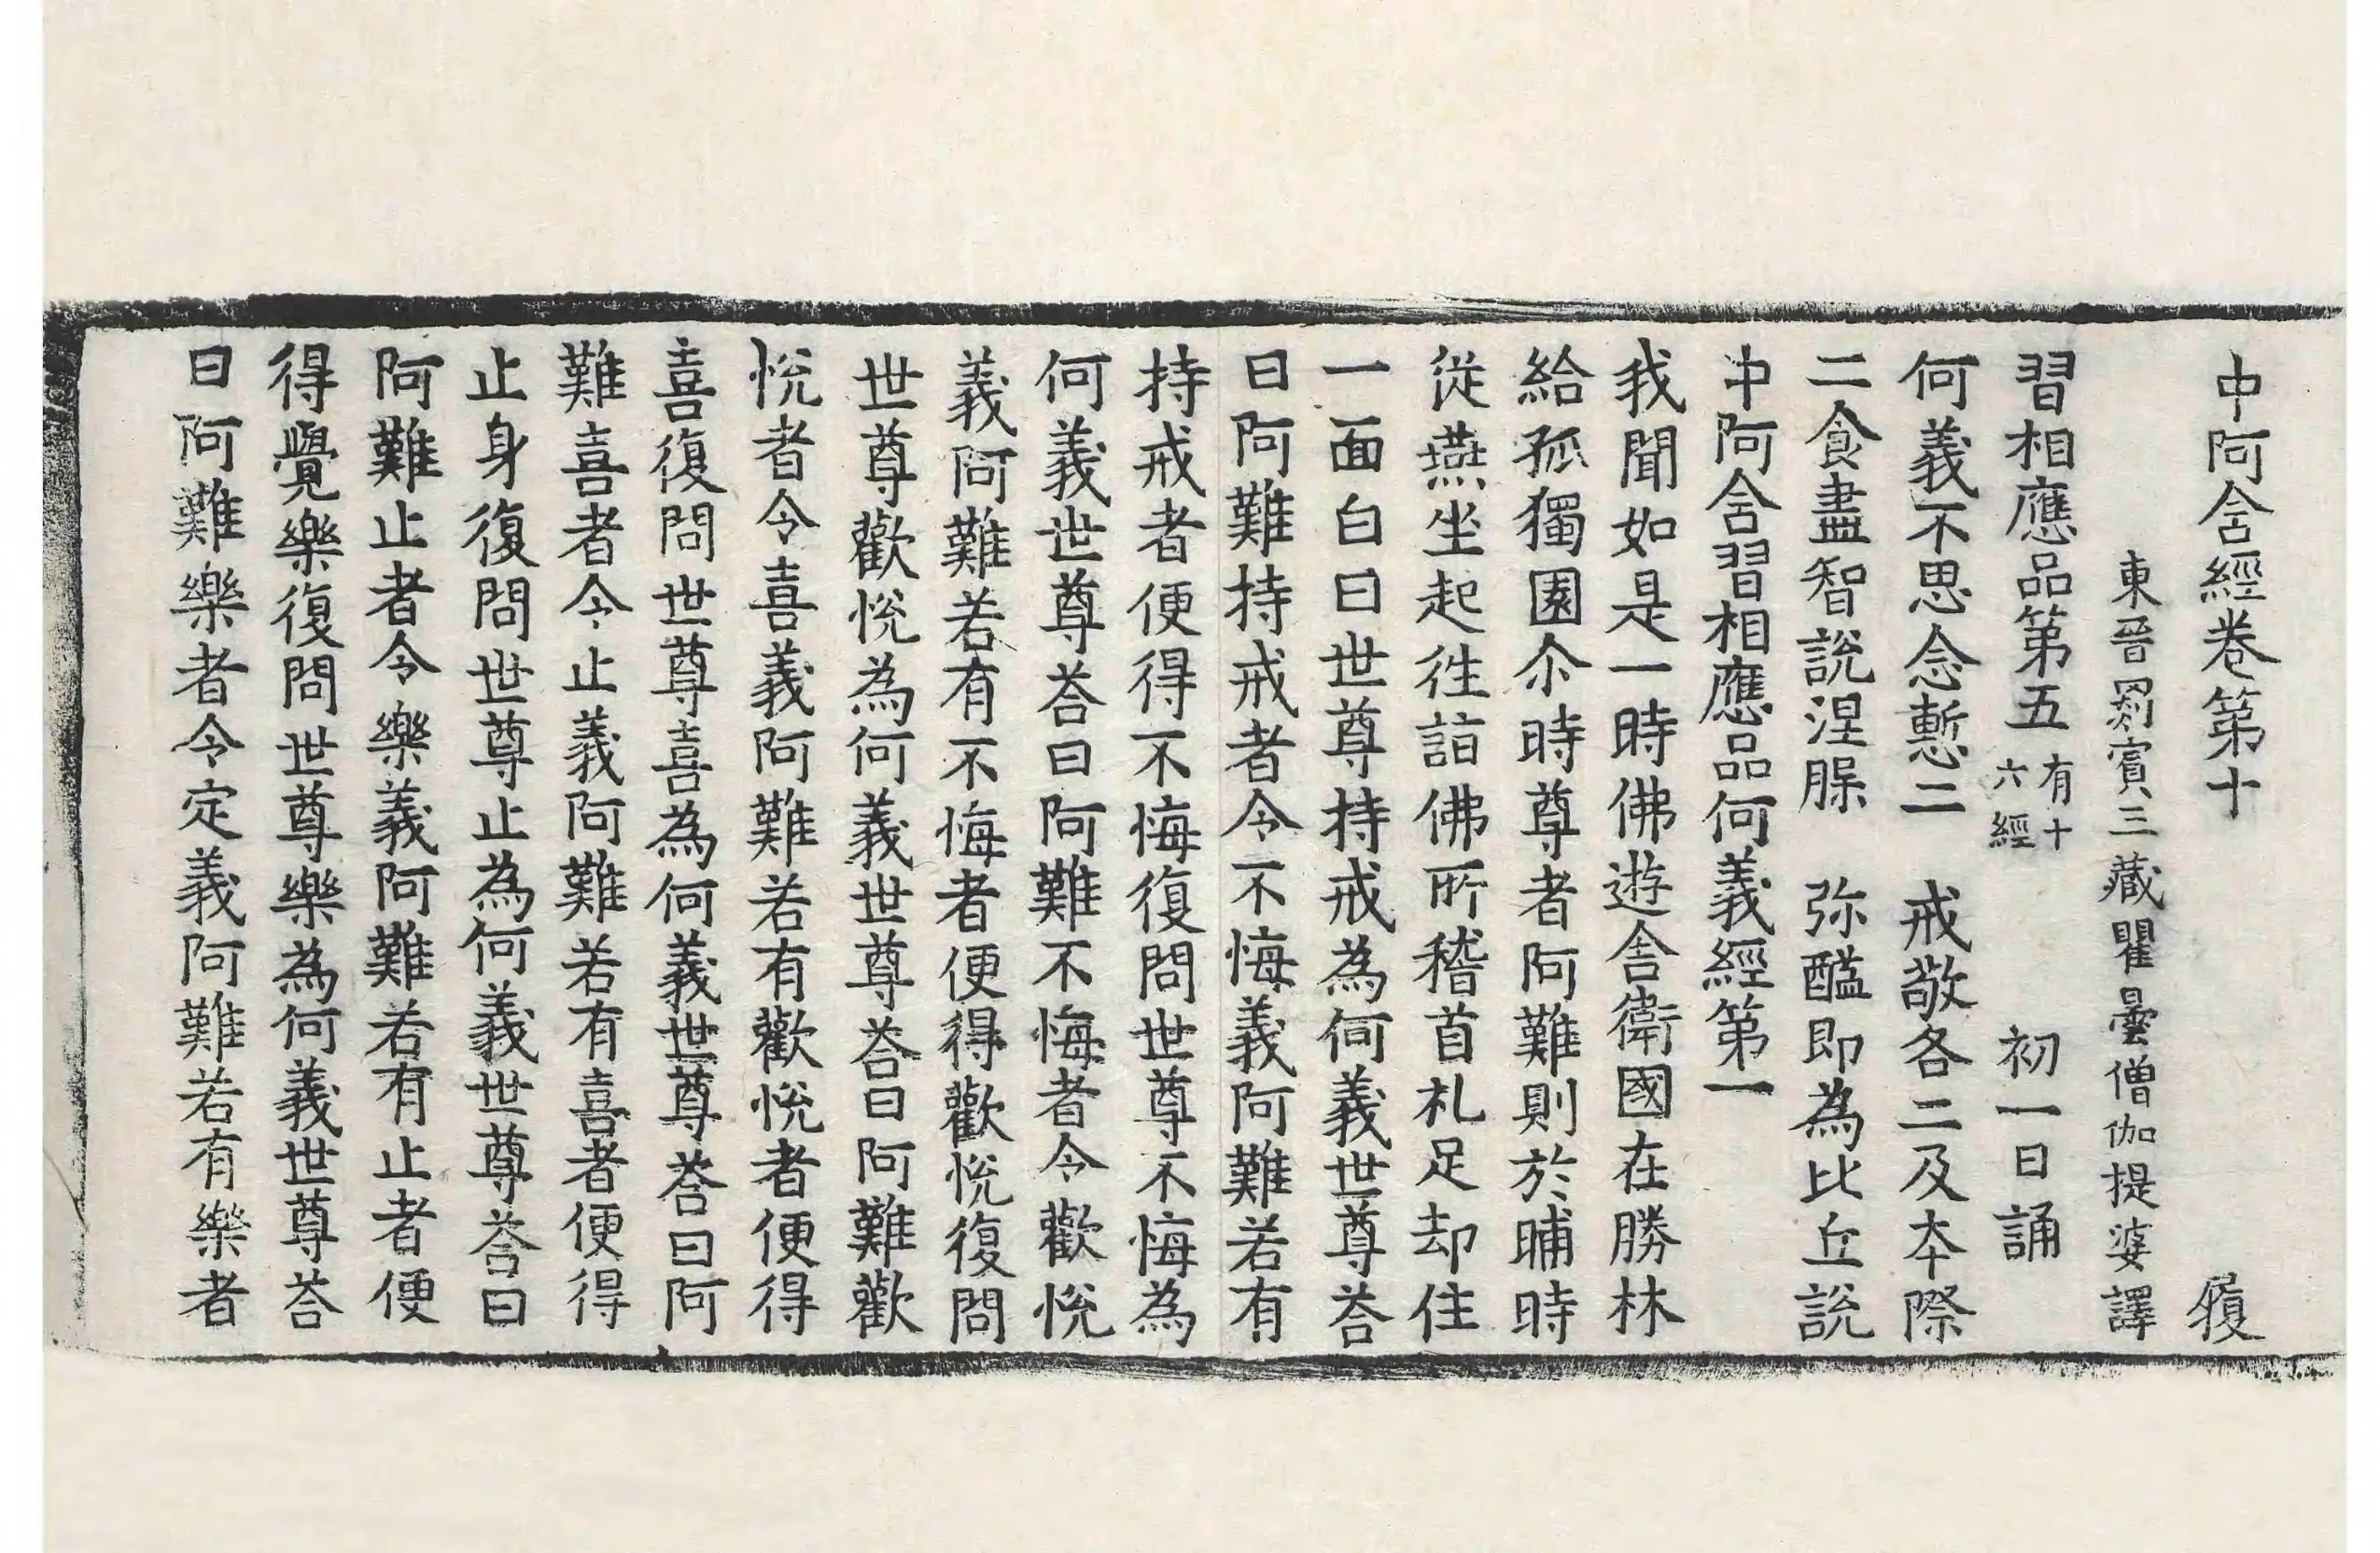 中阿含經卷第十 履
東晉罽賓三藏瞿曇僧伽提婆譯
習相應品第五 有十六經 初一日誦
何義不思念慙二 戒敬各二及夲際
二食盡智說涅脲 弥醯即為比丘說
中阿含習相應品何義經第一
我聞如是一時佛遊舍衛國在勝林
給孤獨園尒時尊者阿難則於晡時
從燕坐起往詣佛所稽首礼足却住
一面白曰世尊持戒為何義世尊荅
曰阿難持戒者令不悔義阿難若有
持戒者便得不悔復問世尊不悔為
何義世尊荅曰阿難不悔者令歡悅
義阿難若有不悔者便得歡悅復問
世尊歡悅為何義世尊荅曰阿難歡
悅者令喜義阿難若有歡悅者便得
喜復問世尊喜為何義世尊荅曰阿
難喜者令止義阿難若有喜者便得
止身復問世尊止為何義世尊荅曰
阿難止者令樂義阿難若有止者便
得覺樂復問世尊樂為何義世尊荅
曰阿難樂者令定義阿難若有樂者